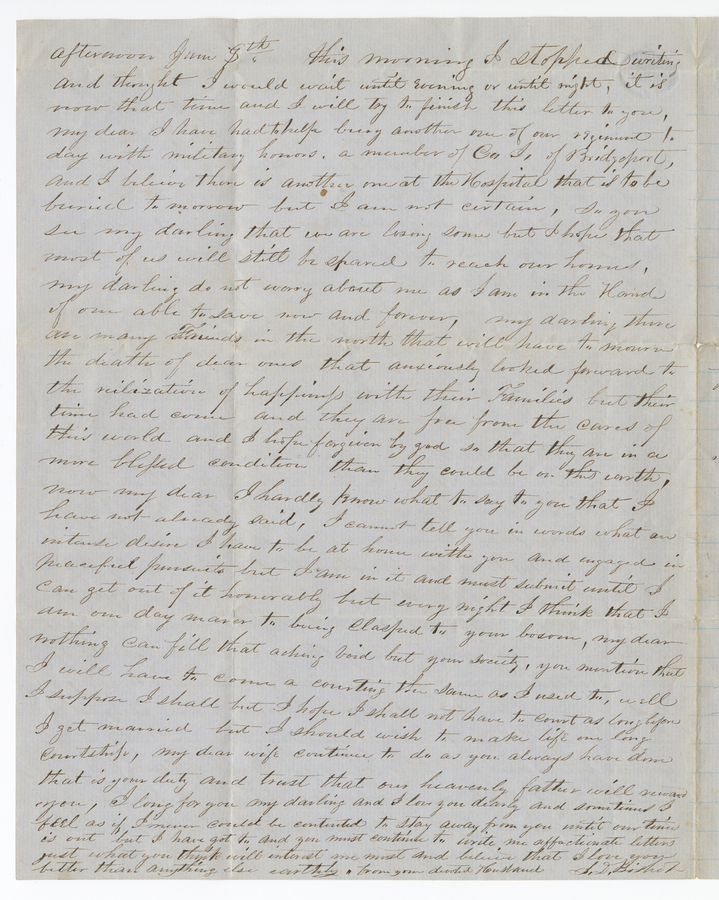 afternoon Jan 8th this morning I stopped writing
and thought I would wait until evening or until night, it is
now that time and I will try to finish this letter to you,
my dear I have had to help bury another one of our regiment to
day with military honors. a member of Co I, of Bridgeport,
and I believe there is another one at the Hospital that is to be
buried to morrow but I am not certain, so you
see my darling that we are losing some but I hope that
most of us will still be spared to reach our homes,
my darling do not worry about me as I am in the Hand
of one able to save now and forever, my darling there
are many Friends in the north that will have to mourn
the death of dear ones that anxiously looked forward to
the relization of happiness with their Families but their
time had come and they are free from the cares of
this world and I hope forgiven by god so that they are in a
more blessed condition than they could be on this earth,
now my dear I hardly know what to say to you that I
have not already said, I cannot tell you in words what an
intense desire I have to be at home with you and engaged in
peaceful pursuits but I am in it and must submit until I
can get out of it honorably but every night I think that I
am one day nearer to being Clasped to your bosom, my dear
nothing can fill that aching void but your society, you mention that
I will have to come a courting the same as I used to, well
I suppose I shall but I hope I shall not have to court as long before
I get married but I should wish to make life one long
courtship, my dear wife continue to do as you always have done
that is your duty and trust that our heavenly father will reward
you, I long for you my darling and I love you dearly and sometimes I
feel as if I never could be contented to stay away from you until our time
is out but I have got to and you must continue to write me affectionate letters
just what you think will interest me most and believe that I love you
better than anything else earthly, from your devoted Husband